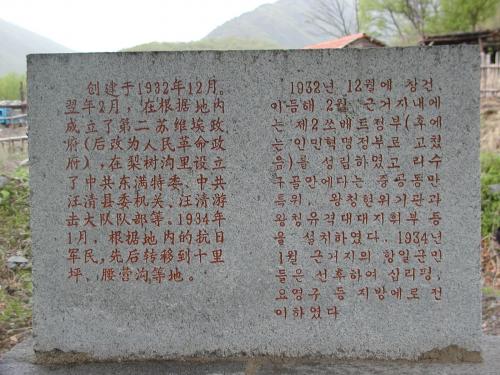 创建于1932年12月。
翌年2月，在根据地内
成立了第二苏维埃政
府(后改为人民革命政
府)，在梨树沟里设立
了中共东满特委、中共
汪清县委机关、汪清游
击大队队部等。1934年
1月，根据地内的抗日
军民，先后转移到十里
坪、腰营沟等地。
1932년 12월에 창건,
이듬해 2월 근거지내에
는 제2쏘베트정부(후에
는 인민혁명정부로 고쳤
음)를 성립하였고 리수
구골안에다는 중공동만
특위, 왕청현위기관과
왕청유격대대지휘부 등
을 설치하였다. 1934년
1월 근거지의 항일군민
들은 선후하여 십리평,
요영구 등 지방에로 전
이하였다